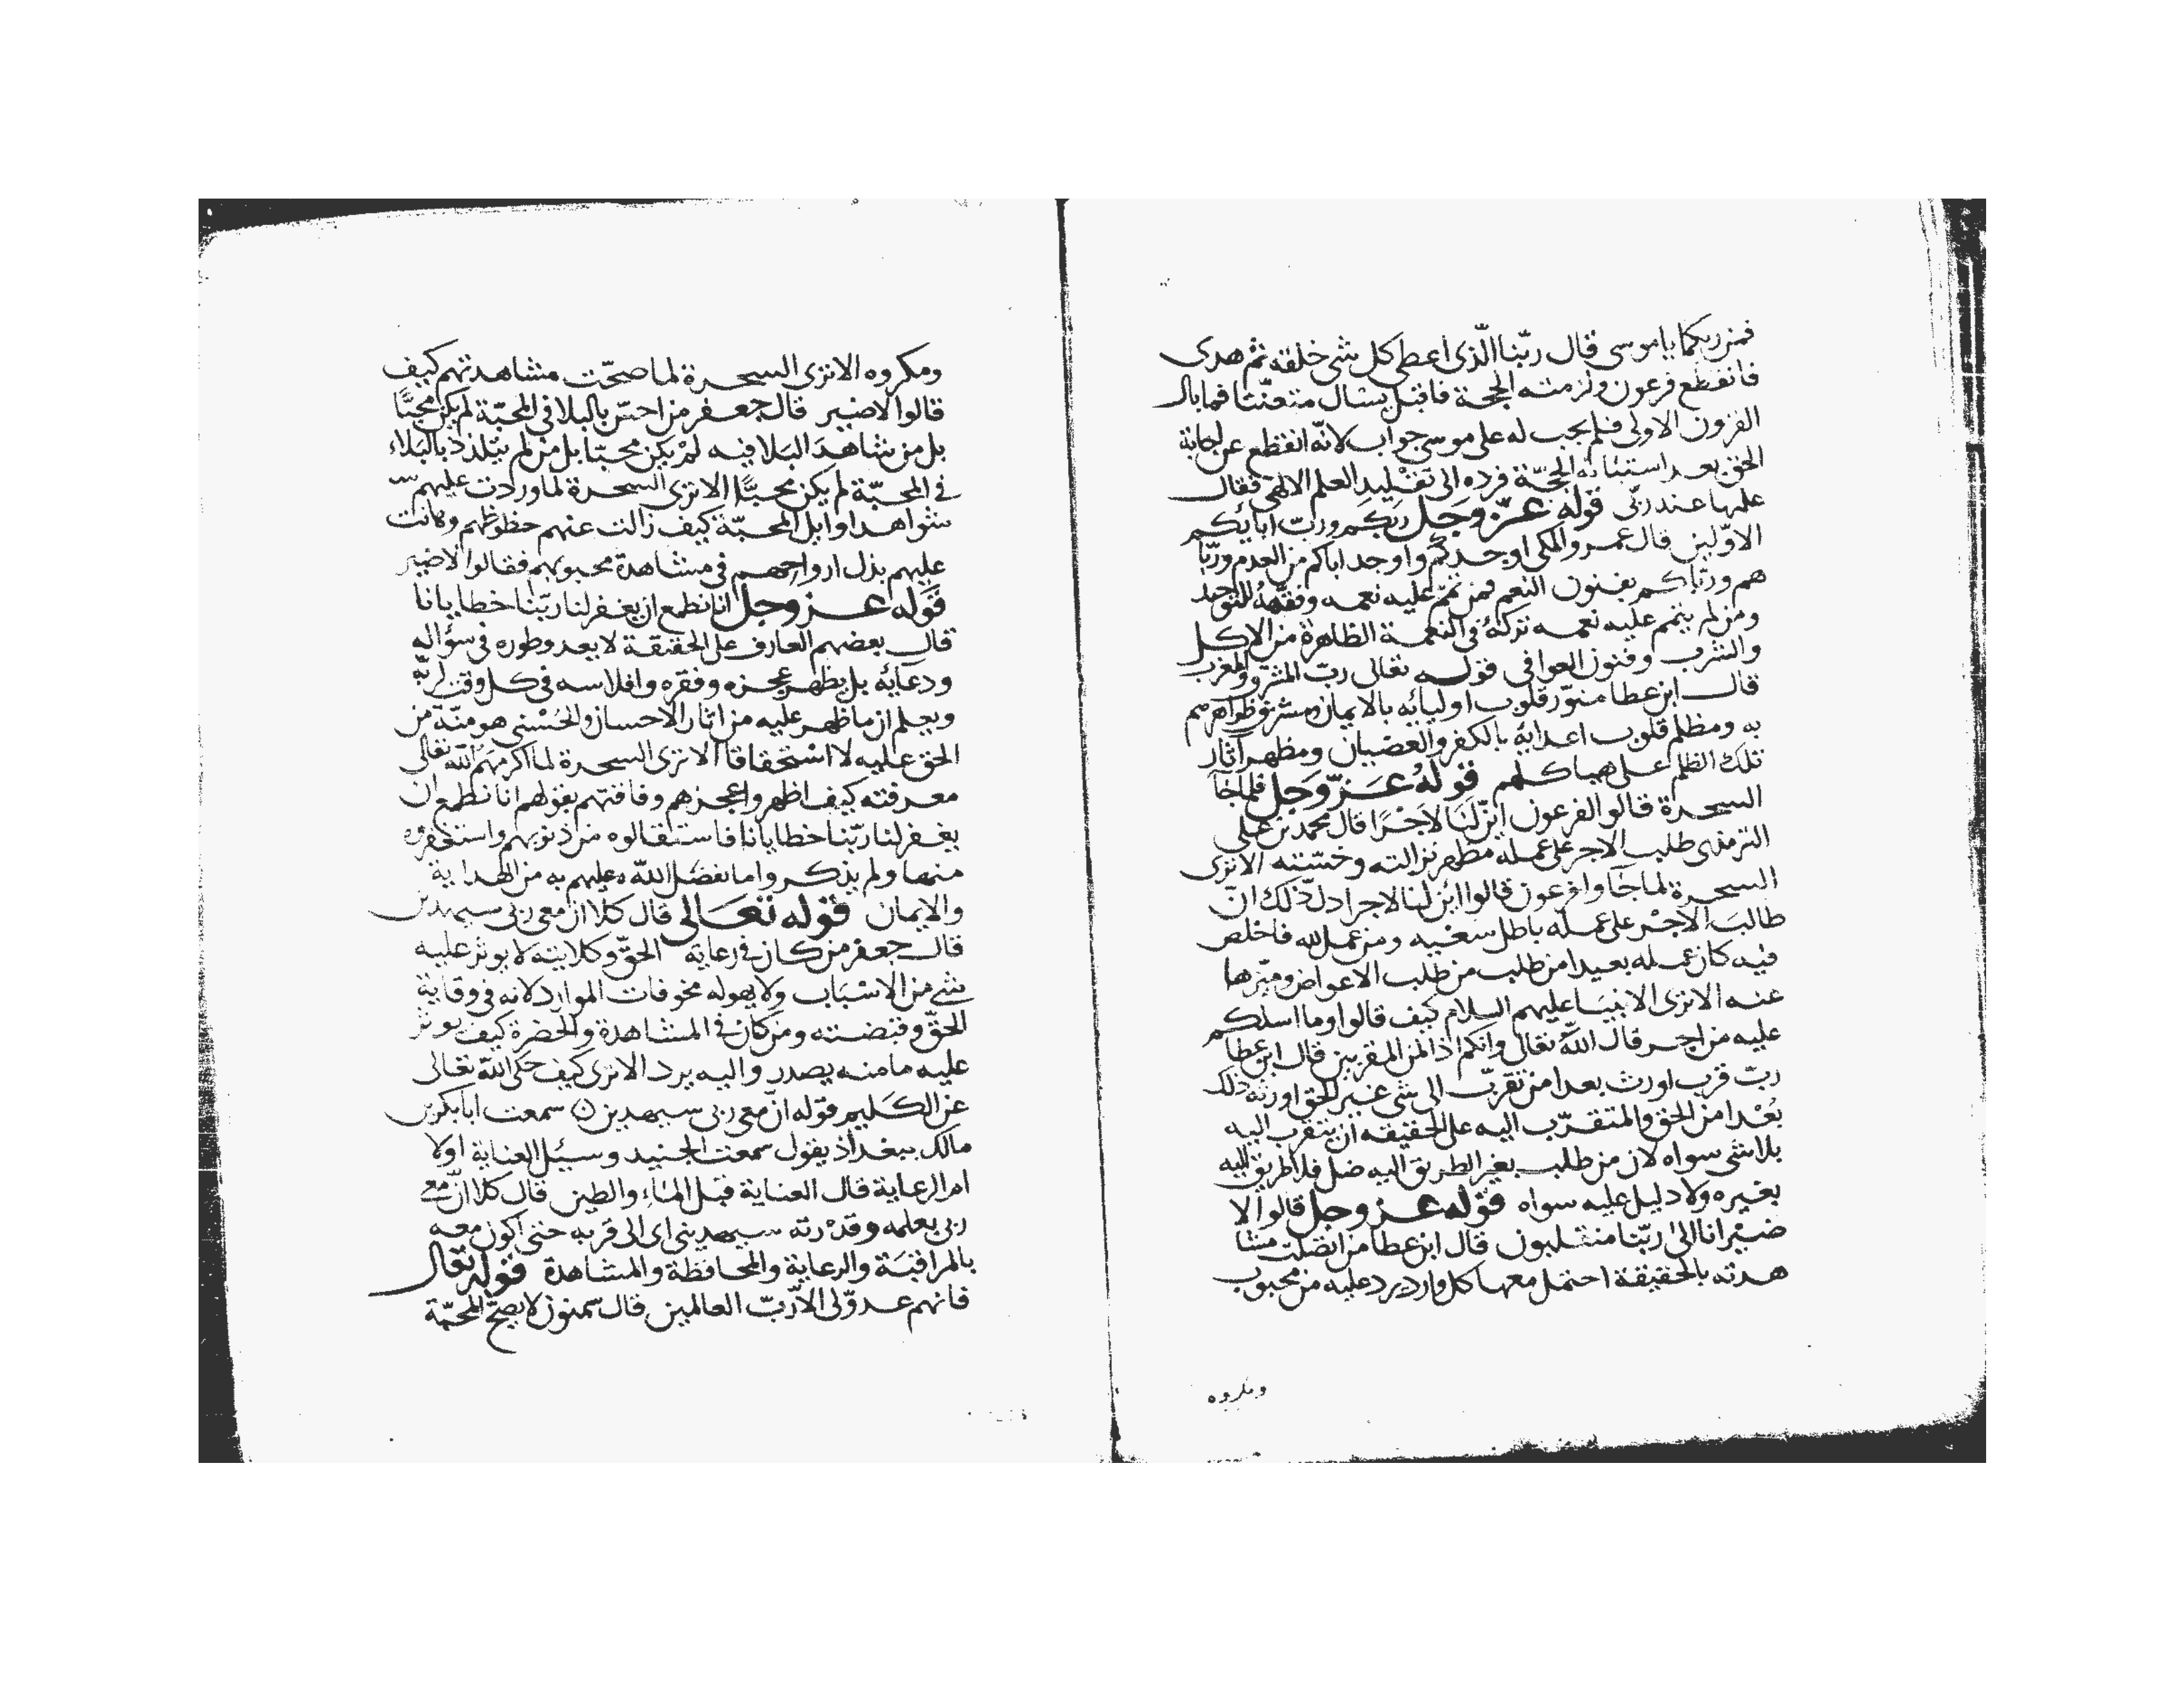 فمن ربكما ياموسى قال ربّنا الّذى اعطى كل شى خلقه ثم هدى
فانقطع فرعون ولزمته الحجة فاقبل يسال متعنّتا فما بال
القرون الاولى فلم يجب له على موسى جواب لانّه انقطع عن
الحق بعد الحجّة فرده الى تقليد العلم الالهى فقال
علمها عند ربّى قوله عزّ وجل ربكم وربّ ابائكم
الاوّلين قال عمرو المكى اوجدكم واوجد اباكم من العدم وربّا
هم ورباكم بفنون النعم فمن تمّم عليه نعمه وفقه للتوحيد
ومن لم يتمم عليه نعمه تركه فى النعمة الظاهرة من الاكل
والشرب وفنون العوافى قوله تعالى ربّ المشرق والمغرب
قال ابن عطا منوّر قلوب اوليائه بالايمان ومشرق ظواهرهم
به ومظلم قلوب اعدائه بالكفر والعصيان ومظهر آثار
تلك الظلم على هياكلهم قوله عَزّ وَجل فلما جآ
السحرة قالوا لفرعون اىٔن لَنا لاَجْرًا قال محمد بن على
الترمذى طلب الاجر على عمله مظهر نزالته وخسّته الا ترى
السحرة لما جَاوا فرعون قالوا ائن لنا لاجرا دلّ ذلك انّ
طالبَ الاجْر على عمله باطل سعيه ومن عمل لله فاخلص
فيه كان عمله بعيدا من طلب من طلب الاعواض وميّزها
عنه الا ترى الانبيَا عليهم السلام كيف قالوا وما اسلكم
عليه من اجر قال اللّه تعالى وانكم اذا لمن المقربين قال ابن عطا
ربّ قرب اورث بعدا من تقرّب الى شى غير الحق اورثه ذلك
بُعْدا من الحق والمتقرّب اليه على الحقيقه ان يتقرب اليه
بلا شى سواه لان من طلب بغير الطريق اليه ضل فلا طريق اليه
بغيره ولا دليل عليه سواه قوله عز وجل قالوا لا
ضيْر انا الىٰ ربّنا منقلبون قال ابن عطا من اتصلت مشا
هدته بالحقيقة احتمل معها كل وارد يرد عليه من محبوب
ومكروه
ومكروه الا ترى السحرة لما صحّت مشاهدتهم كيف
قالوا لا ضير قال جعفر من احسّ بالبلا فى المحبّة لم يكن محبًّا
بل من شاهدَ البَلا فيه لمْ يكن محبّا بل من لم يتلذذ بالبَلاء
فى المحبّة لم يكن محبًّا الا ترى السحرة لما وردت عليهم
شواهد اوايل المحبّة كيف زالت عنهم حظوظهم وهانت
عليهم بذل ارواحهم فى مشاهدة محبوبهم فقالوا لا ضير
قوَله عز وجل انا نطمع ان يغفر لنا ربّنا خطايانا
قال بعضهم العارف على الحقيقة لا يعدو طوره فى سؤاله
ودعائه بل يظهر عجزه وفقره وافلاسه فى كل وقت لربّه
ويعلم ان ما ظهر عليه من اثار الاحسان والحُسْنى هو منّة من
الحق عليه لا اسْتحقاقا الا ترى السحرة لما اكرمهم الله تعالى
معرفته كيف اظهروا عجزهم وفاقتهم بقولهم انا نطمع ان
يغفر لنا ربّنا خطايانا فاستقالوه من ذنوبهم واستغفروه
منها ولم يذكروا ما تفضل اللّه عليهم به من الهداية
والايمان قوله تعَالى قال كلا ان معى ربى سيهدين
قال جعفر من كان فى رعاية الحقّ وكلايته لا يوثر عليه
شى من الاسْبَاب ولا يهوله مخوفات الموارد لانه فى وقاية
الحقّ وقبضته ومن كان فى المشاهدة والحضرة كيف يوثر
عليه ما منه يصدر واليه يرد الا ترى كيف حكى اللّه تعالى
عن الكَليم قوله انّ معى ربى سيهدين ن سمعت ابا بكر بن
مالك ببغداذ يقول سمعت الجنيد وسئل العناية اولا
ام الرعاية قال العناية قبل المَاء والطين قال كلا انّ معى
ربى بعلمه وقدْرته سيهدينى اى الى قربه حتى اكون معه
بالمراقبَة والرعاية والمحافظة والمشاهدة قوله تعال
فانهم عدوّ لى الا ربّ العالمين قال سمنون لا يصحّ المحبّة